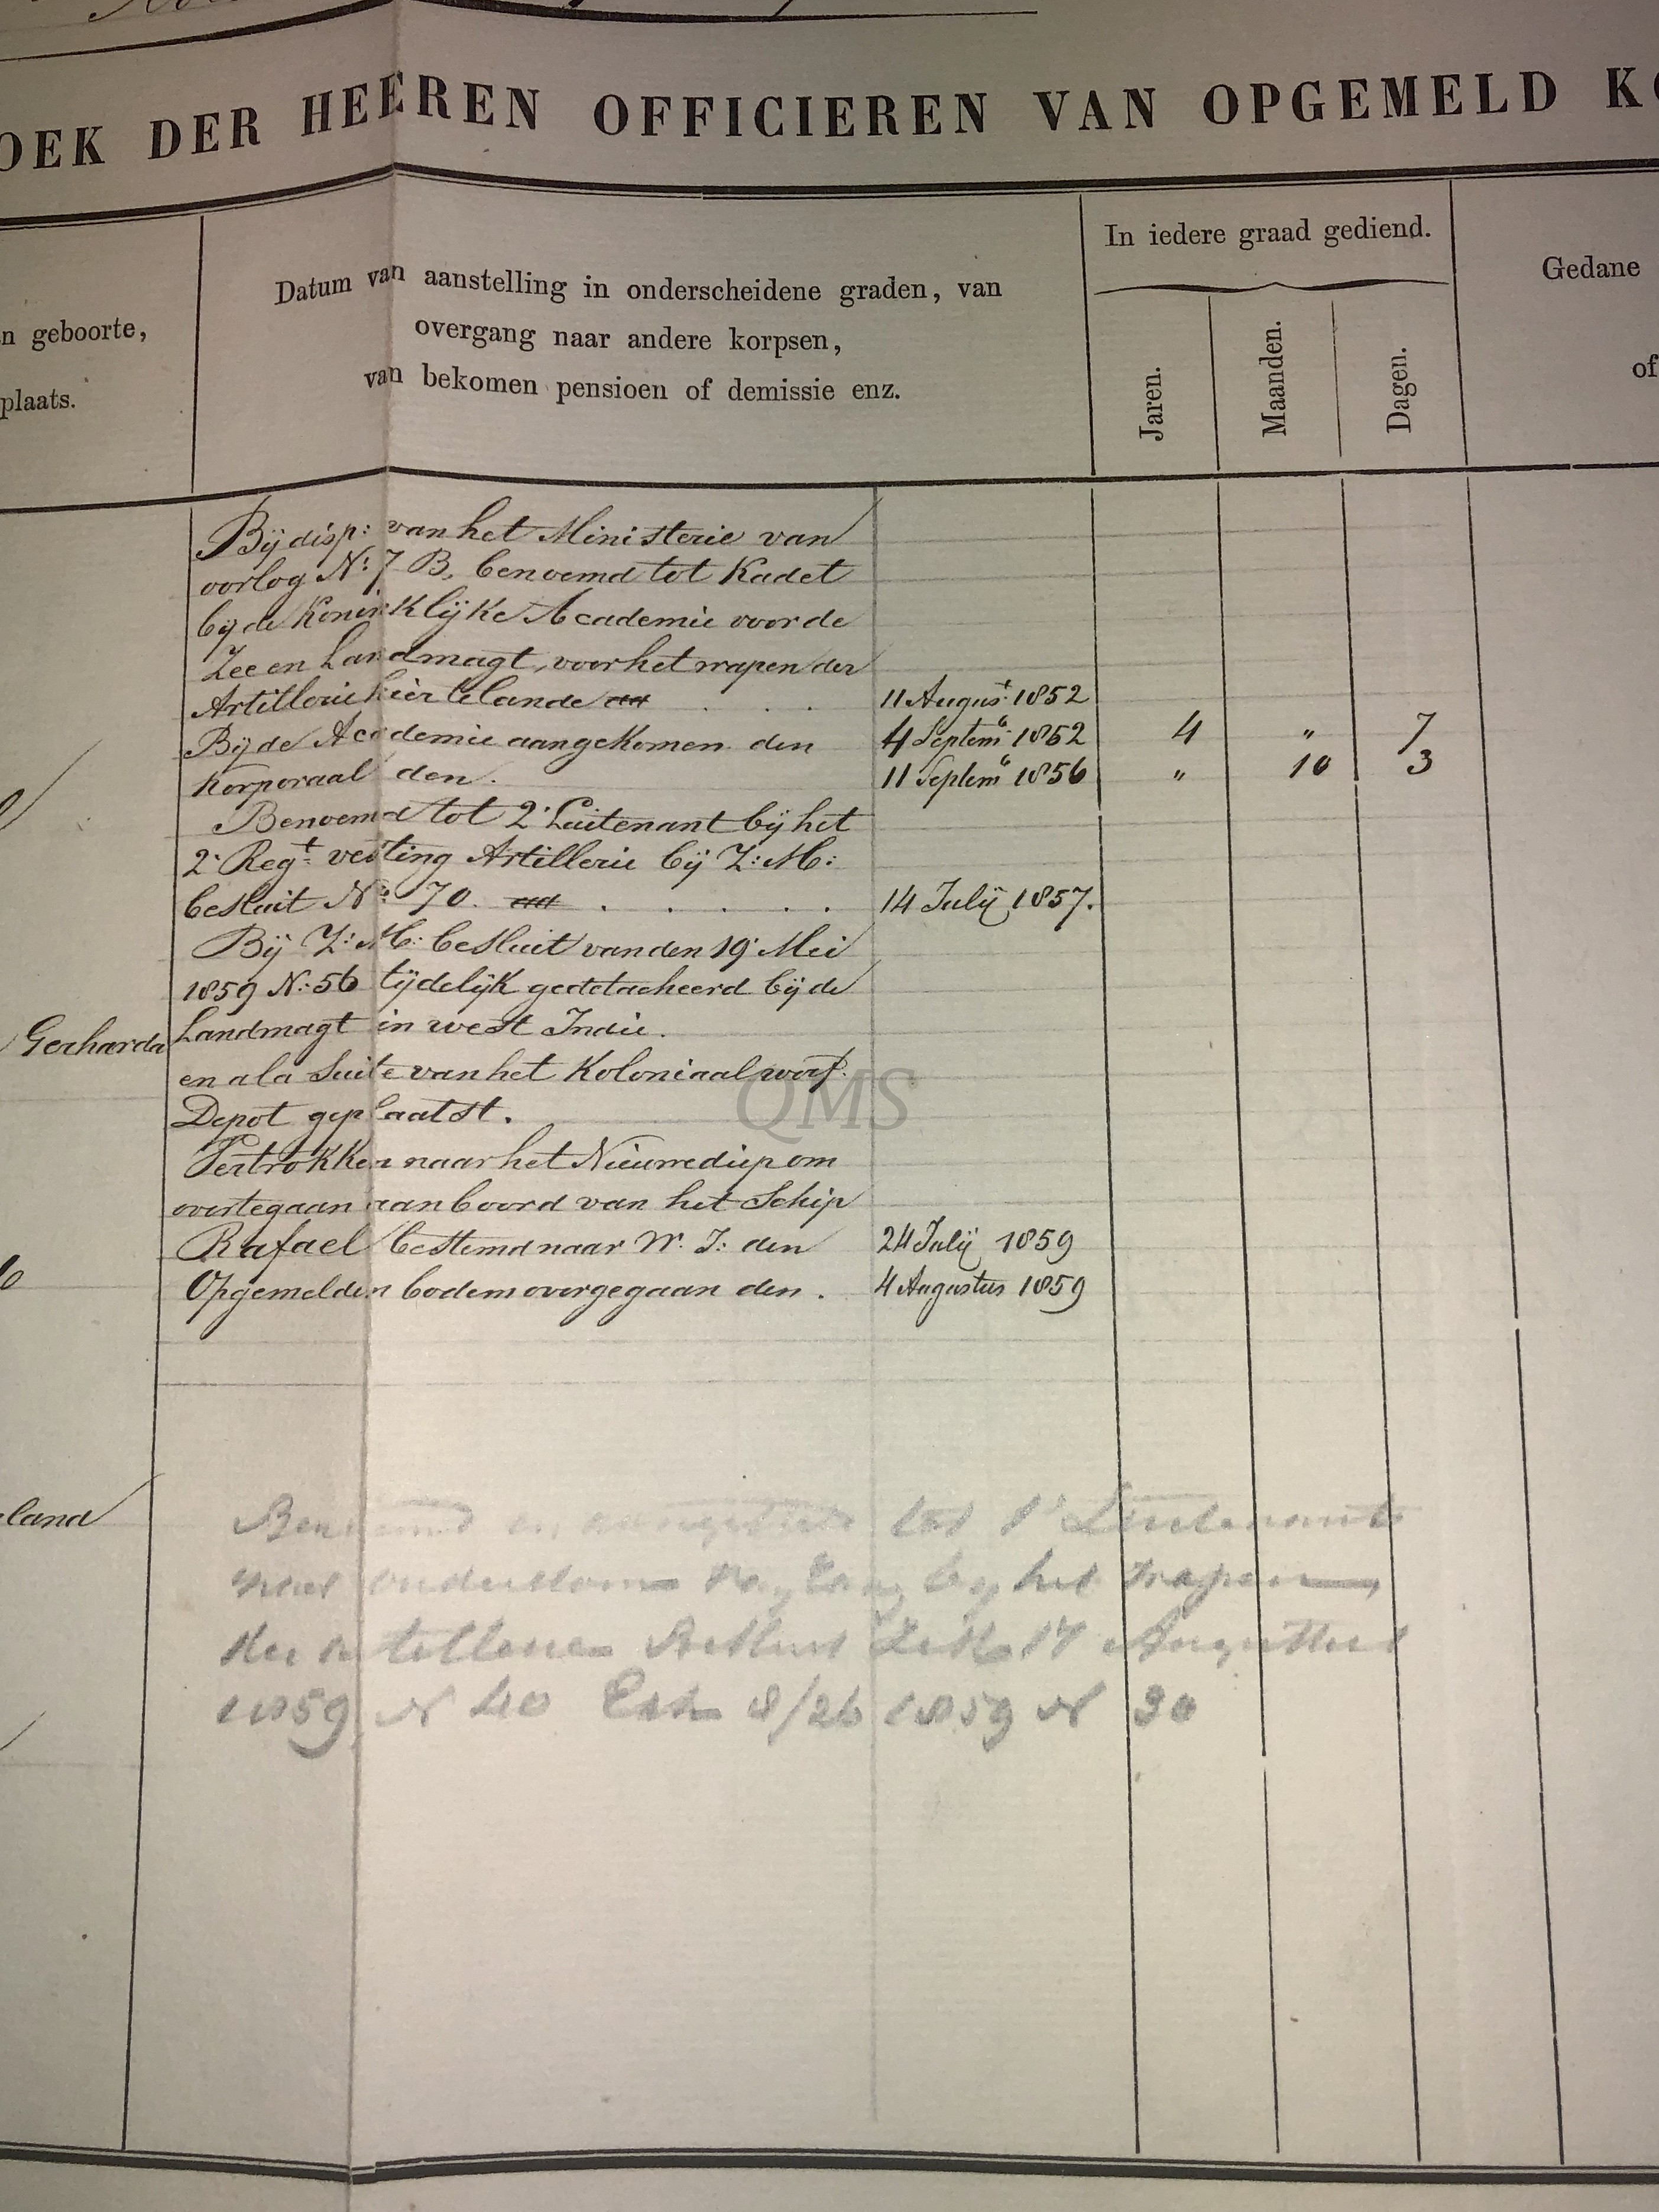 OEK DER HEEREN OFFICIEREN VAN OPGEMELD KO
n geboorte,
plaats.
Datum van aanstelling in onderscheidene graden, van
overgang naar andere korpsen,
van bekomen pensioen of demissie enz.
In iedere graad gediend.
Jaren.
Maanden.
Dagen.
Gedane
of
Bij disp: van het Ministerie van
oorlog N:º 7 B, benoemd tot Kadet
bij de Koninklijke Academie voor de
Zee en Landmagt, voor het wapen der
Artillerie hier te lande . . . 11 Augus.t 1852
Bij de Academie aangekomen den 4 Septemb. 1852 4 " 7
Korporaal den. 11 Septemb 1856 " 10 3
Benoemd tot 2e Luitenant bij het
2e Regt. vesting Artillerie bij Z: M:
besluit No: 70. . . . . . 14 Julij 1857.
Bij Z: M: besluit van den 19e Mei
1859 N: 56 tijdelijk gedetacheerd bij de
Gerharda
Landmagt in west Indie.
en a la suite van het Koloniaal werf.
Depot geplaatst.
QMS
Vertrokken naar het Nieuwediep om
overtegaan aan boord van het Schip
Rafael bestemd naar W. I: den 24 Julij 1859
Opgemelden bodem overgegaan den . 4 Augustus 1859
land
Benoemd en aangesteld tot 1e Luitenant
met ouderdoms rang bij het wapen
der artillerie Besluit ZM 17 Augustus
1859 N 40 8/26 1859 N 30